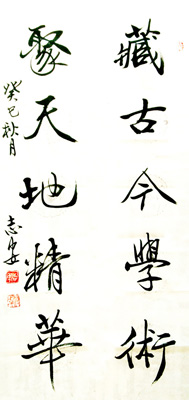 藏古今學術
聚天地精華
癸巳秋月
志安